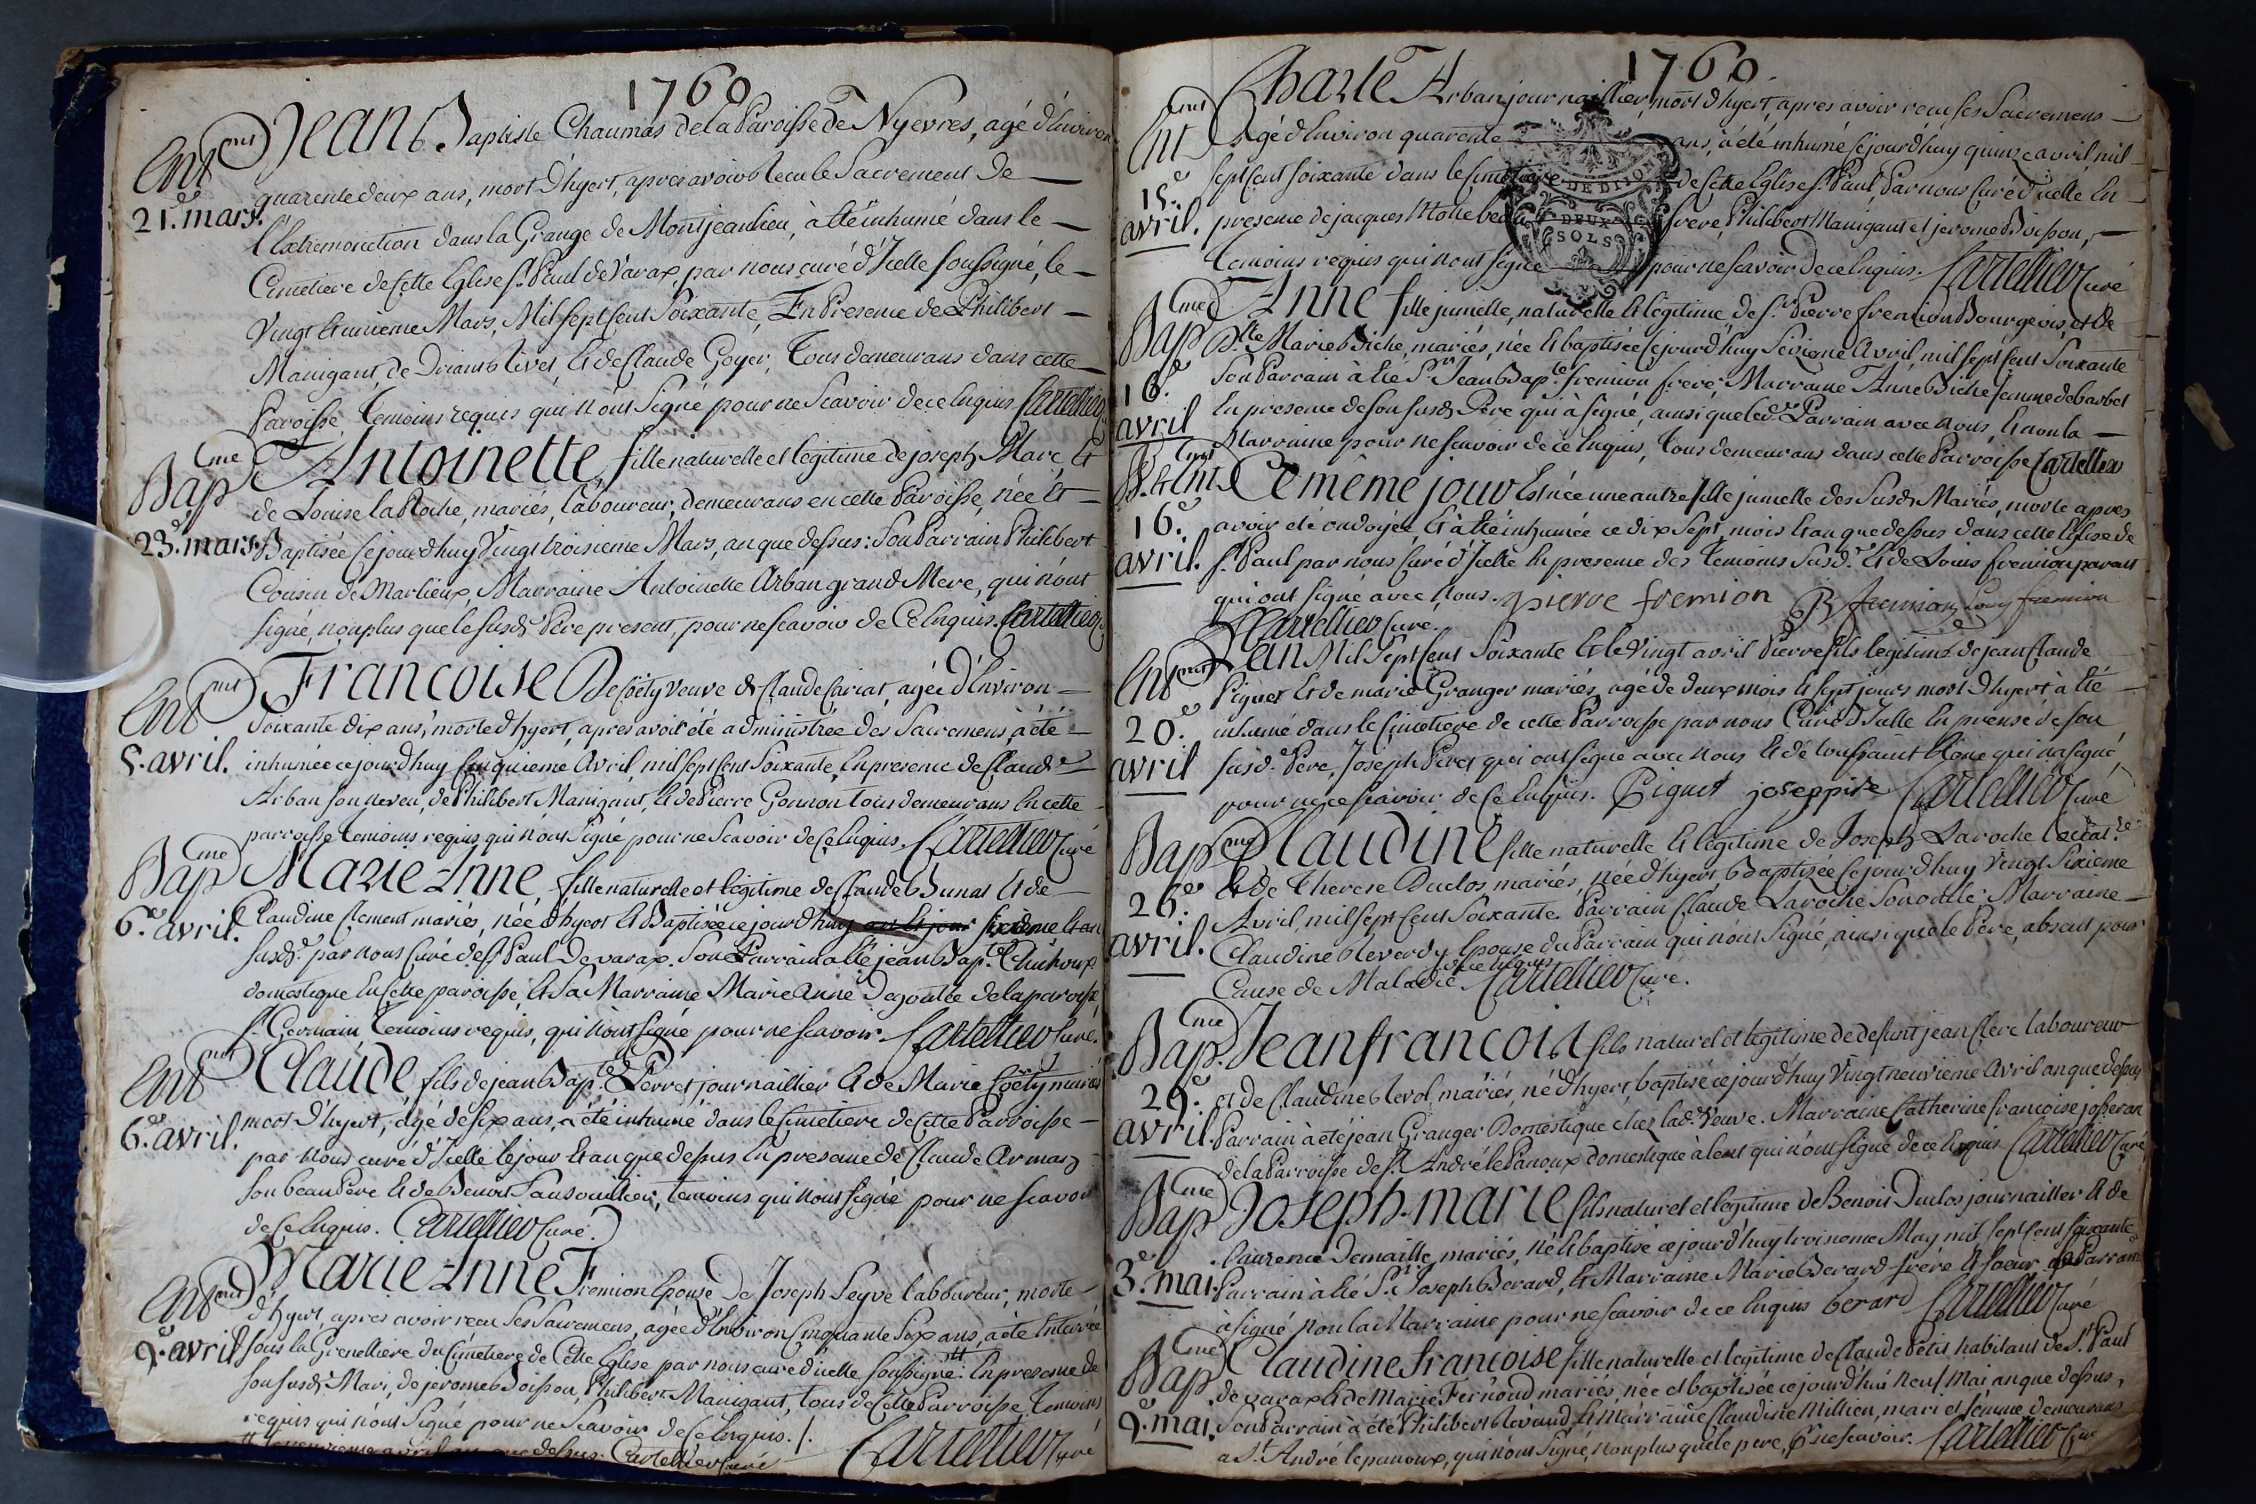 1760
Jean Baptiste Chaumas de la Paroisse de Nyevres, agé d'Environ
Ent.ment
quarente deux ans, mort d'hyert, apres avoir Receu le Sacrement de
21.e mars.
l'Extremonction dans la Grange de Montjeanlieu, à été inhumé dans le
Cimetiere de Cette Eglise St Paul de Varax, par nous curé d'Icelle soussigné, le
Vingt & unieme Mars, Mil sept Cent Soixante, En Presence de Philibert
Manigant, de & de Claude Goyer, tous demeurans dans cette
Paroisse, temoins requis qui n'ont Signé pour ne Scavoir de ce Enquis Cartellier
Bap.me Antoinette, fille naturelle et legitime de joseph Mare, &
de Louise la Roche, mariés, laboureur, demeurans en cette Paroisse, née &
23.e mars. Baptisée Cejourdhuy Vingt troisieme Mars, an que dessus: Son Parrain Philibert
Cousin de Marlieux, Marraine Antoinette Arban grand Mere, qui n'ont
signé, nonplus que le susd. Père present, pour ne scavoir de Ce Enquis. Cartellier
Ent.ment Francoise De Coëty veuve de Claude Cariat, agée d'Environ
Soixante dix ans, morte d'hyert, apres avoir été administrée des Sacremens, à été
5.e avril. inhumée cejourdhuy Cinquieme Avril, mil sept Cent Soixante, En presence de Claude
Arban son neveu, de Philibert Manigant, & de Pierre Gonnon tous demeurans En cette
parroisse temoins requis qui n'ont Signé pour ne Scavoir de Ce Enquis. Cartellier Curé
Bap.me Marie Anne, fille naturelle et legitime de Claude Bunat & de
6.e avril. Claudine Clement mariés, née d'hyert & Baptisée ce jourdhuy an & jour sixieme & an
susd. par nous Curé de St Paul De varax. Son Parrain a été jean Bap.te
domestique En cette paroisse, & Sa Marraine Marie Anne de la paroisse
St Germain, temoins requis, qui n'ont Signé pour ne scavoir. Cartellier Curé.
Ent.ment Claude fils de jean Bap.te Perret journaillier & de Marie Coëty mariés
6.e avril. mort d'hyert, agé de six ans, a été inhumé dans le Cimetiere de Cette Parroisse
par nous curé d'Icelle le jour & an que dessus En presence de Claude
son beau Père & de Benoit temoins qui n'ont signé pour ne scavoir
de Ce Enquis. Cartellier Curé.
Ent.ment Marie Anne Fremion Epouse De Joseph Seyve laboureur, morte
d'hyert, apres avoir receu ses Sacremens, agée d'Environ Cinquante Six ans, a été Enterrée
9.e avril sous la Grenelliere du Cimetiere de Cette Eglise par nous curé d'icelle soussigné. En presence de
son susd. Mari, de jerome Boisson, Philibert Manigant, tous de Cette Parroisse temoins
requis qui n'ont Signé pour ne Scavoir de Ce Enquis. /. Cartellier Curé
le neuvieme avril an que dessus. Cartellier Curé
1760.
Charle Arban journaillier, mort d'hyert, apres avoir receu ses Sacremens
Ent.ment agé d'Environ quarente ans, a été inhumé cejourdhuy quinze avril, mil
15.e avril. sept Cent soixante dans le Cimetiere de Cette Eglise St Paul Par nous Curé d'icelle En
presence de jacques beau frere, Philibert Manigant et jerome Boisson,
temoins requis qui n'ont signé pour ne scavoir de ce Enquis. Cartellier Curé
DE DIJON
DEUX
SOLS
Bap.me Anne fille jumelle, naturelle & legitime de Sr Pierre fremion Bourgeois, et de
D.lle Marie Biche, mariés, née & baptisée cejourdhuy Seizieme Avril, mil sept cent Soixante
16.e avril Son Parrain à été Sr Jean Bap.te fremion frere Marraine Anne Biche femme de barbet
En presence de son susd. Père qui à signé, ainsi que led. Parrain avec nous, & non la
Marraine pour ne scavoir de ce Enquis, tous demeurans dans cette Parroisse Cartellier
B. & Ent.ment Ce même jour Est née une autre fille jumelle des susd. Mariés, morte apres
16.e avril. avoir été ondoyée, & à été inhumée ce dix Sept, mois & an que dessus dans cette Eglise de
St Paul par nous Curé d'Icelle En presence des temoins susd. & de Louis fremion parant
qui ont signé avec Nous. pierre fremion JB fremion Louis fremion
Cartellier Curé.
Ent.ment L'an Mil Sept Cent Soixante & le vingt avril Pierre fils legitime de jean Claude
Piguet & de marie Granger mariés, agé de deux mois & sept jours mort d'hyert à été
20.e avril inhumé dans le Cimetiere de cette Parroisse par nous Curé d'Icelle En presence de son
susd. Père, Joseph Piret qui ont signé avec nous & de toussaint qui n'a signé,
pour ne scavoir de Ce Enquis. Piguet joseppire Cartellier Curé
Bap.me Claudine fille naturelle & legitime de Joseph Laroche
& de Therese Duclos mariés, née d'hyert & Baptisée cejourd'huy Vingt Sixieme
26.e avril. Avril, mil sept Cent Soixante. Parrain Claude Laroche Son oncle, Marraine
Claudine Reverdy Epouse du Parrain qui n'ont Signé, ainsi que le Père, absent pour
Cause de Maladie de ce Enquis Cartellier Curé.
Bap.me Jean francois fils naturel et legitime de defunt jean Clere laboureur
29.e avril. et de Claudine Revol mariés, né d'hyert, baptisé cejourdhuy Vingt neuvieme Avril an que dessus
Parrain à été jean Granger Domestique chez lad. Veuve. Marraine Catherine francoise josseran
de la Parroisse de St André le Panoux domestique à qui n'ont signé de ce Enquis Cartellier Curé
Bap.me Joseph-marie fils naturel et legitime de Benoit Duclos journailler & de
Laurence Demaille mariés, né & baptisé ce jourd'huy troisieme May mil sept cent soixante
3.e mai. Parrain à été Sr Joseph Berard, & Marraine Marie Berard frére & soeur le Parrain
à signé non la Marraine pour ne scavoir de ce Enquis berard Cartellier Curé
Bap.me Claudine francoise fille naturelle et legitime de Claude Petit habitant de St Paul
de varax & de Marie Fernoud mariés, née et baptisée cejourd'hui neuf Mai an que dessus,
9.e mai. Son Parrain à été Philibert Revaud, & Marraine Claudine Millien, mari et femme demeurans
a St André le panoux, qui n'ont Signé, non plus que le pere, ne scavoir. Cartellier Curé